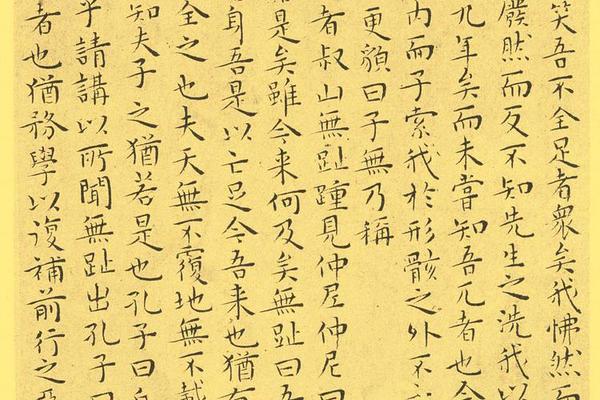 笑吾不全足者衆矣我怫然而
廢然而反不知先生之洗我以
九年矣而未嘗知吾兀者也今
內而子索我於形骸之外不
更貌曰子無乃稱
者叔山無趾踵見仲尼仲尼曰
若是矣雖今来何及矣無趾曰吾
身吾是以亡足今吾来也猶有
全之也夫天無不覆地無不載
知夫子之猶若是也孔子曰
乎請講以所聞無趾出孔子曰
者也猶務學以復補前行之